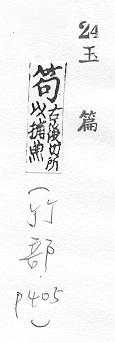 24 玉篇
笱 古後切所以捕魚
(竹部 p405)